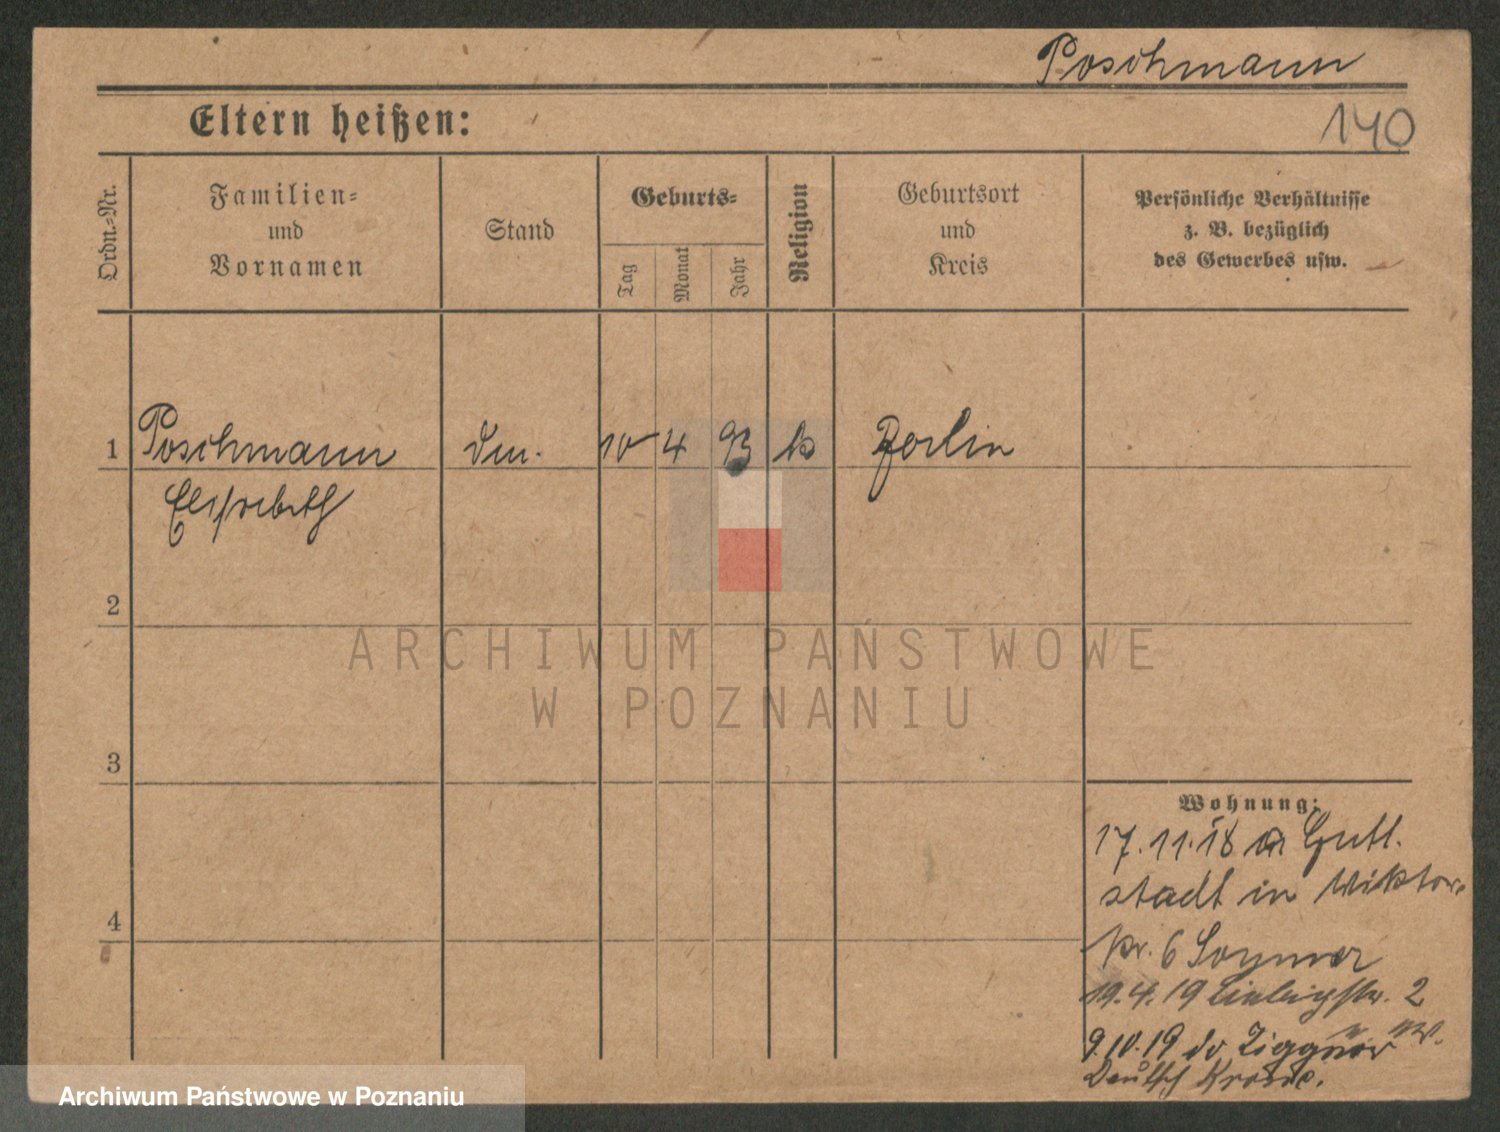 Poschmann
140
Eltern heißen:
Ordn.-Nr.
Familien-
und
Vornamen
Stand
Geburts-
Tag
Monat
Jahr
Religion
Geburtsort
und
Kreis
Persönliche Verhältnisse
z. B. bezüglich
des Gewerbes usw.
1 Poschmann 10 4 93 k Berlin
Elisabeth
2
ARCHIWUM PAŃSTWOWE
W POZNANIU
3
Wohnung:
17.11.18 Gutt.
stadt in Viktor.
Kr. 6 Sommer
19.4.19 Liebigstr. 2
9.10.19 do
Deutsch Krone.
4
Archiwum Państwowe w Poznaniu